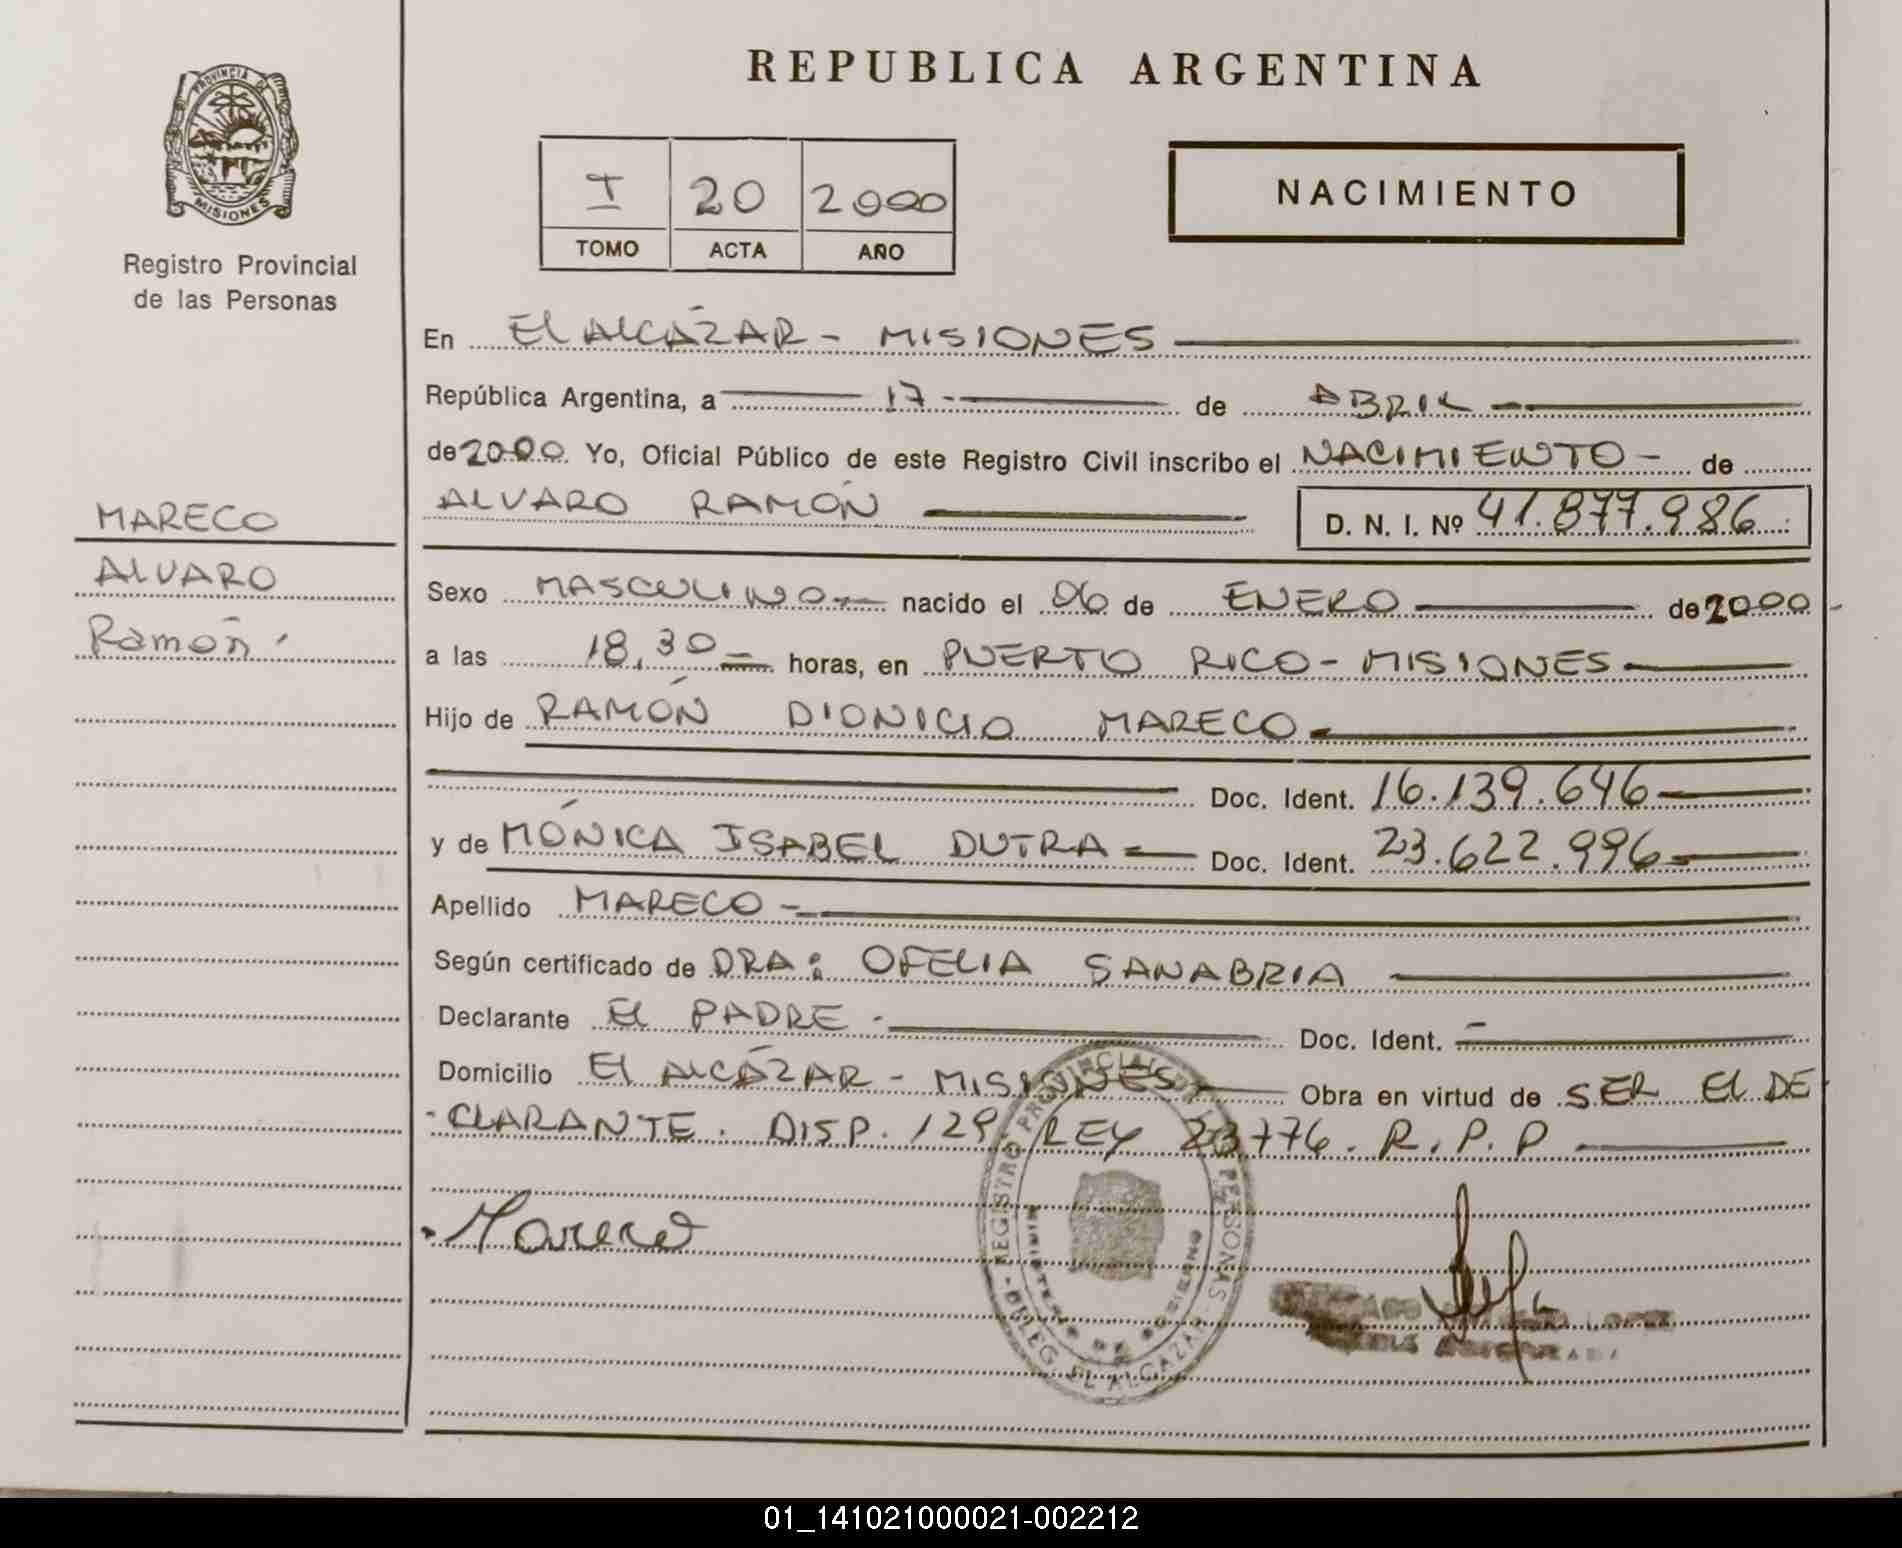 REPUBLICA ARGENTINA
PROVINCIA DE
MISIONES
Registro Provincial
de las Personas
I 20 2000
TOMO ACTA AÑO
NACIMIENTO
En EL ALCÁZAR - MISIONES
República Argentina, a 17 de ABRIL
de 2000 Yo, Oficial Público de este Registro Civil inscribo el NACIMIENTO - de
ALVARO RAMÓN D. N. I. Nº 41.877.986
MARECO
ALVARO
Ramón.
Sexo MASCULINO nacido el 06 de ENERO de 2000 -
a las 18,30 horas, en PUERTO RICO - MISIONES
Hijo de RAMÓN DIONICIO MARECO
Doc. Ident. 16.139.646
y de MÓNICA ISABEL DUTRA Doc. Ident. 23.622.996
Apellido MARECO -
Según certificado de DRA: OFELIA SANABRIA
Declarante EL PADRE - Doc. Ident. -
Domicilio EL ALCÁZAR - MISIONES Obra en virtud de SER EL DE
-CLARANTE. DISP. 129 LEY 23776. R.P.P
REGISTRO PROVINCIAL DE LAS PERSONAS
MINISTERIO DE GOBIERNO
DELEG. EL ALCAZAR
Mareco
LOPEZ
01_141021000021-002212